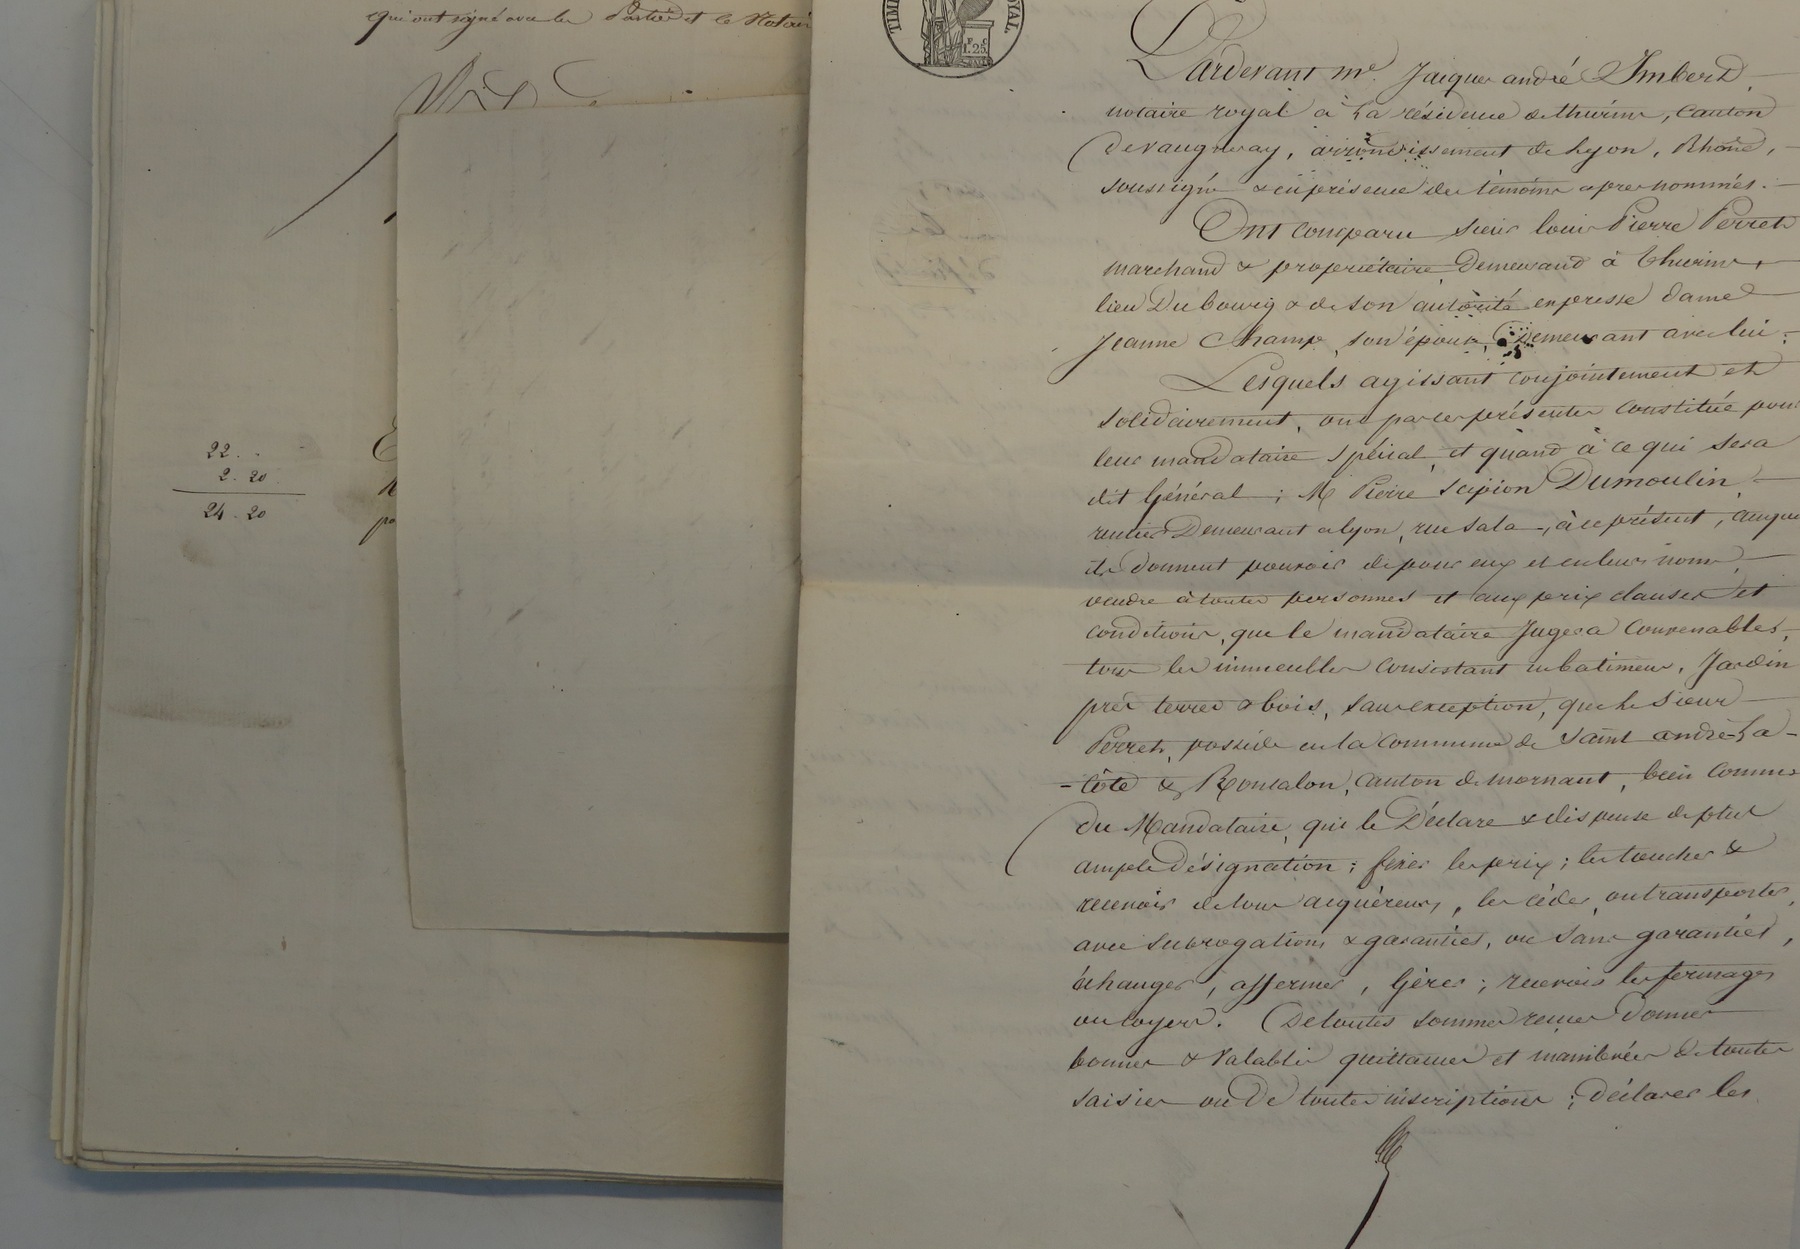 qui ont signé avec les Parties et le Notaire
22. .
2. 20
24. 20
TIMBRE ROYAL
F C
1.25
Pardevant me. Jacques andré Imbert,
notaire royal à La résidence de thurins, canton
de vaugneray, arrondissement de Lyon, Rhône,
soussigné & en présence des témoins apres nommés.
Ont comparu sieur louis Pierre Perret
marchand & propriétaire demeurand à thurins,
lieu du bourg & de son autorité expresse dame
Jeanne Champ, son épouse, demeurant avec lui;
Lesquels agissant conjointement et
solidairement, ont par ces présentes constitué pour
leur mandataire spécial, et quand à ce qui sera
dit Général; M Pierre Scipion Dumoulin,
rentier demeurant a lyon, rue Sala, à ce présent, auquel
ils donnent pouvoir de pour eux et en leurs noms,
vendre à toutes personnes et aux prix clauses et
conditions, que le mandataire Jugera Convenables,
tous les immeubles Consistant en batimens, Jardin
prés terres & bois, sans exception, que le sieur
Perret, possède en la Commune de Saint andré-La-
-Côte & Rontalon, Canton de mornant, bien Connus
du Mandataire, qui le Déclare & dispense de plus
ample désignation; fixer les prix; les toucher &
recevoir de tous acquéreurs, les céder, ou transporter,
avec subrogations & garanties, ou sans garanties,
échanger, affermer, Gérer; recevoir les fermages
ou loyers. De toutes sommes reçues donner
bonnes & Valables quittances et mainlevées de toutes
saisies ou de toutes inscriptions; déclarer les